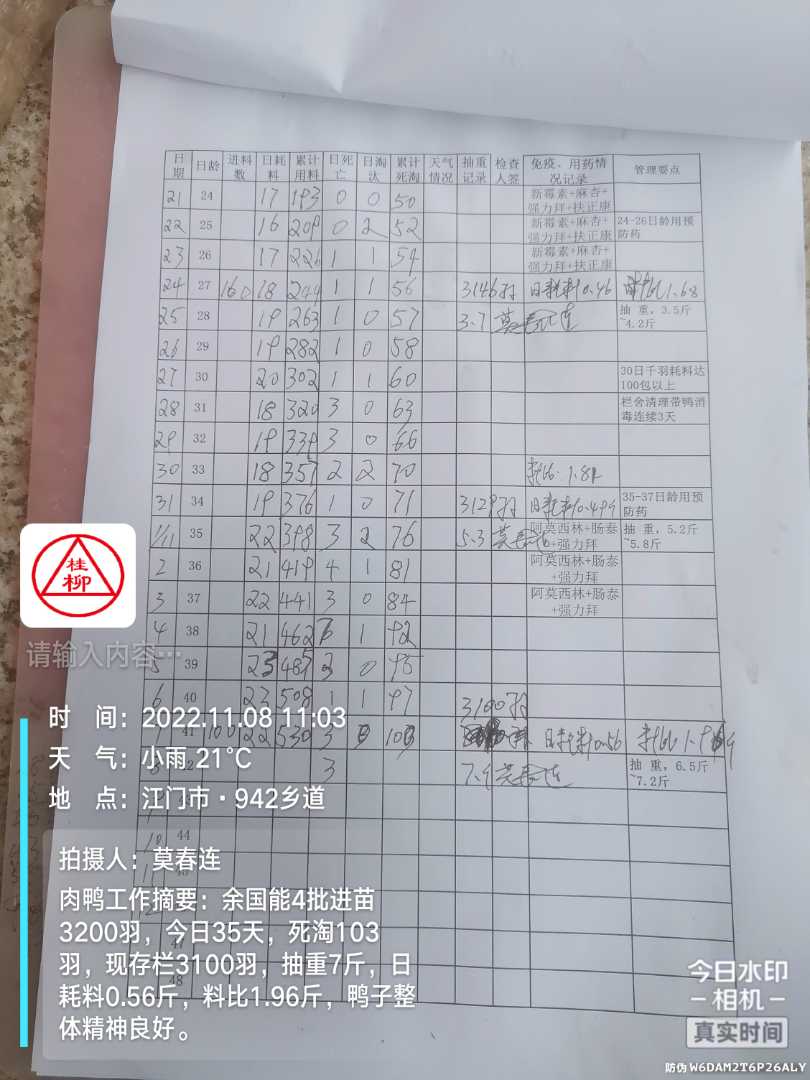 日期 日龄 进料数 日耗料 累计用料 日死亡 日淘汰 累计死淘 天气情况 抽重记录 检查人签 免疫、用药情况记录 管理要点
21 24 17 193 0 0 50 新霉素+麻杏+强力拜+扶正康
22 25 16 209 0 2 52 新霉素+麻杏+强力拜+扶正康 24-26日龄用预防药
23 26 17 226 1 1 54 新霉素+麻杏+强力拜+扶正康
24 27 160 18 244 1 1 56 3146羽 日耗料0.46 料比1.68
25 28 19 263 1 0 57 3.7 莫春连 抽重,3.5斤~4.2斤
26 29 19 282 1 0 58
27 30 20 302 1 1 60 30日千羽耗料达100包以上
28 31 18 320 3 0 63 栏舍清理带鸭消毒连续3天
29 32 19 339 3 0 66
30 33 18 357 2 2 70 料比 1.8
31 34 19 376 1 0 71 3129羽 日耗料0.49斤 35-37日龄用预防药
1/11 35 22 398 3 2 76 5.3 莫春连 阿莫西林+肠泰+强力拜 抽重,5.2斤~5.8斤
2 36 21 419 4 1 81 阿莫西林+肠泰+强力拜
3 37 22 441 3 0 84 阿莫西林+肠泰+强力拜
4 38 21 462 1 92
5 39 23 485 3 0 95
6 40 23 508 1 1 97 3100羽
41 100 22 530 3 103 日耗料0.56 料比1.9 斤
8 42 3 7.9 莫春连 抽重,6.5斤~7.2斤
44
47
48
桂柳
请输入内容…
时 间:2022.11.08 11:03
天 气:小雨 21°C
地 点:江门市·942乡道
拍摄人:莫春连
肉鸭工作摘要:余国能4批进苗
3200羽,今日35天,死淘103
羽,现存栏3100羽,抽重7斤,日
耗料0.56斤,料比1.96斤,鸭子整
体精神良好。
今日水印
-相机-
真实时间
防伪 W6DAM2T6P26ALY